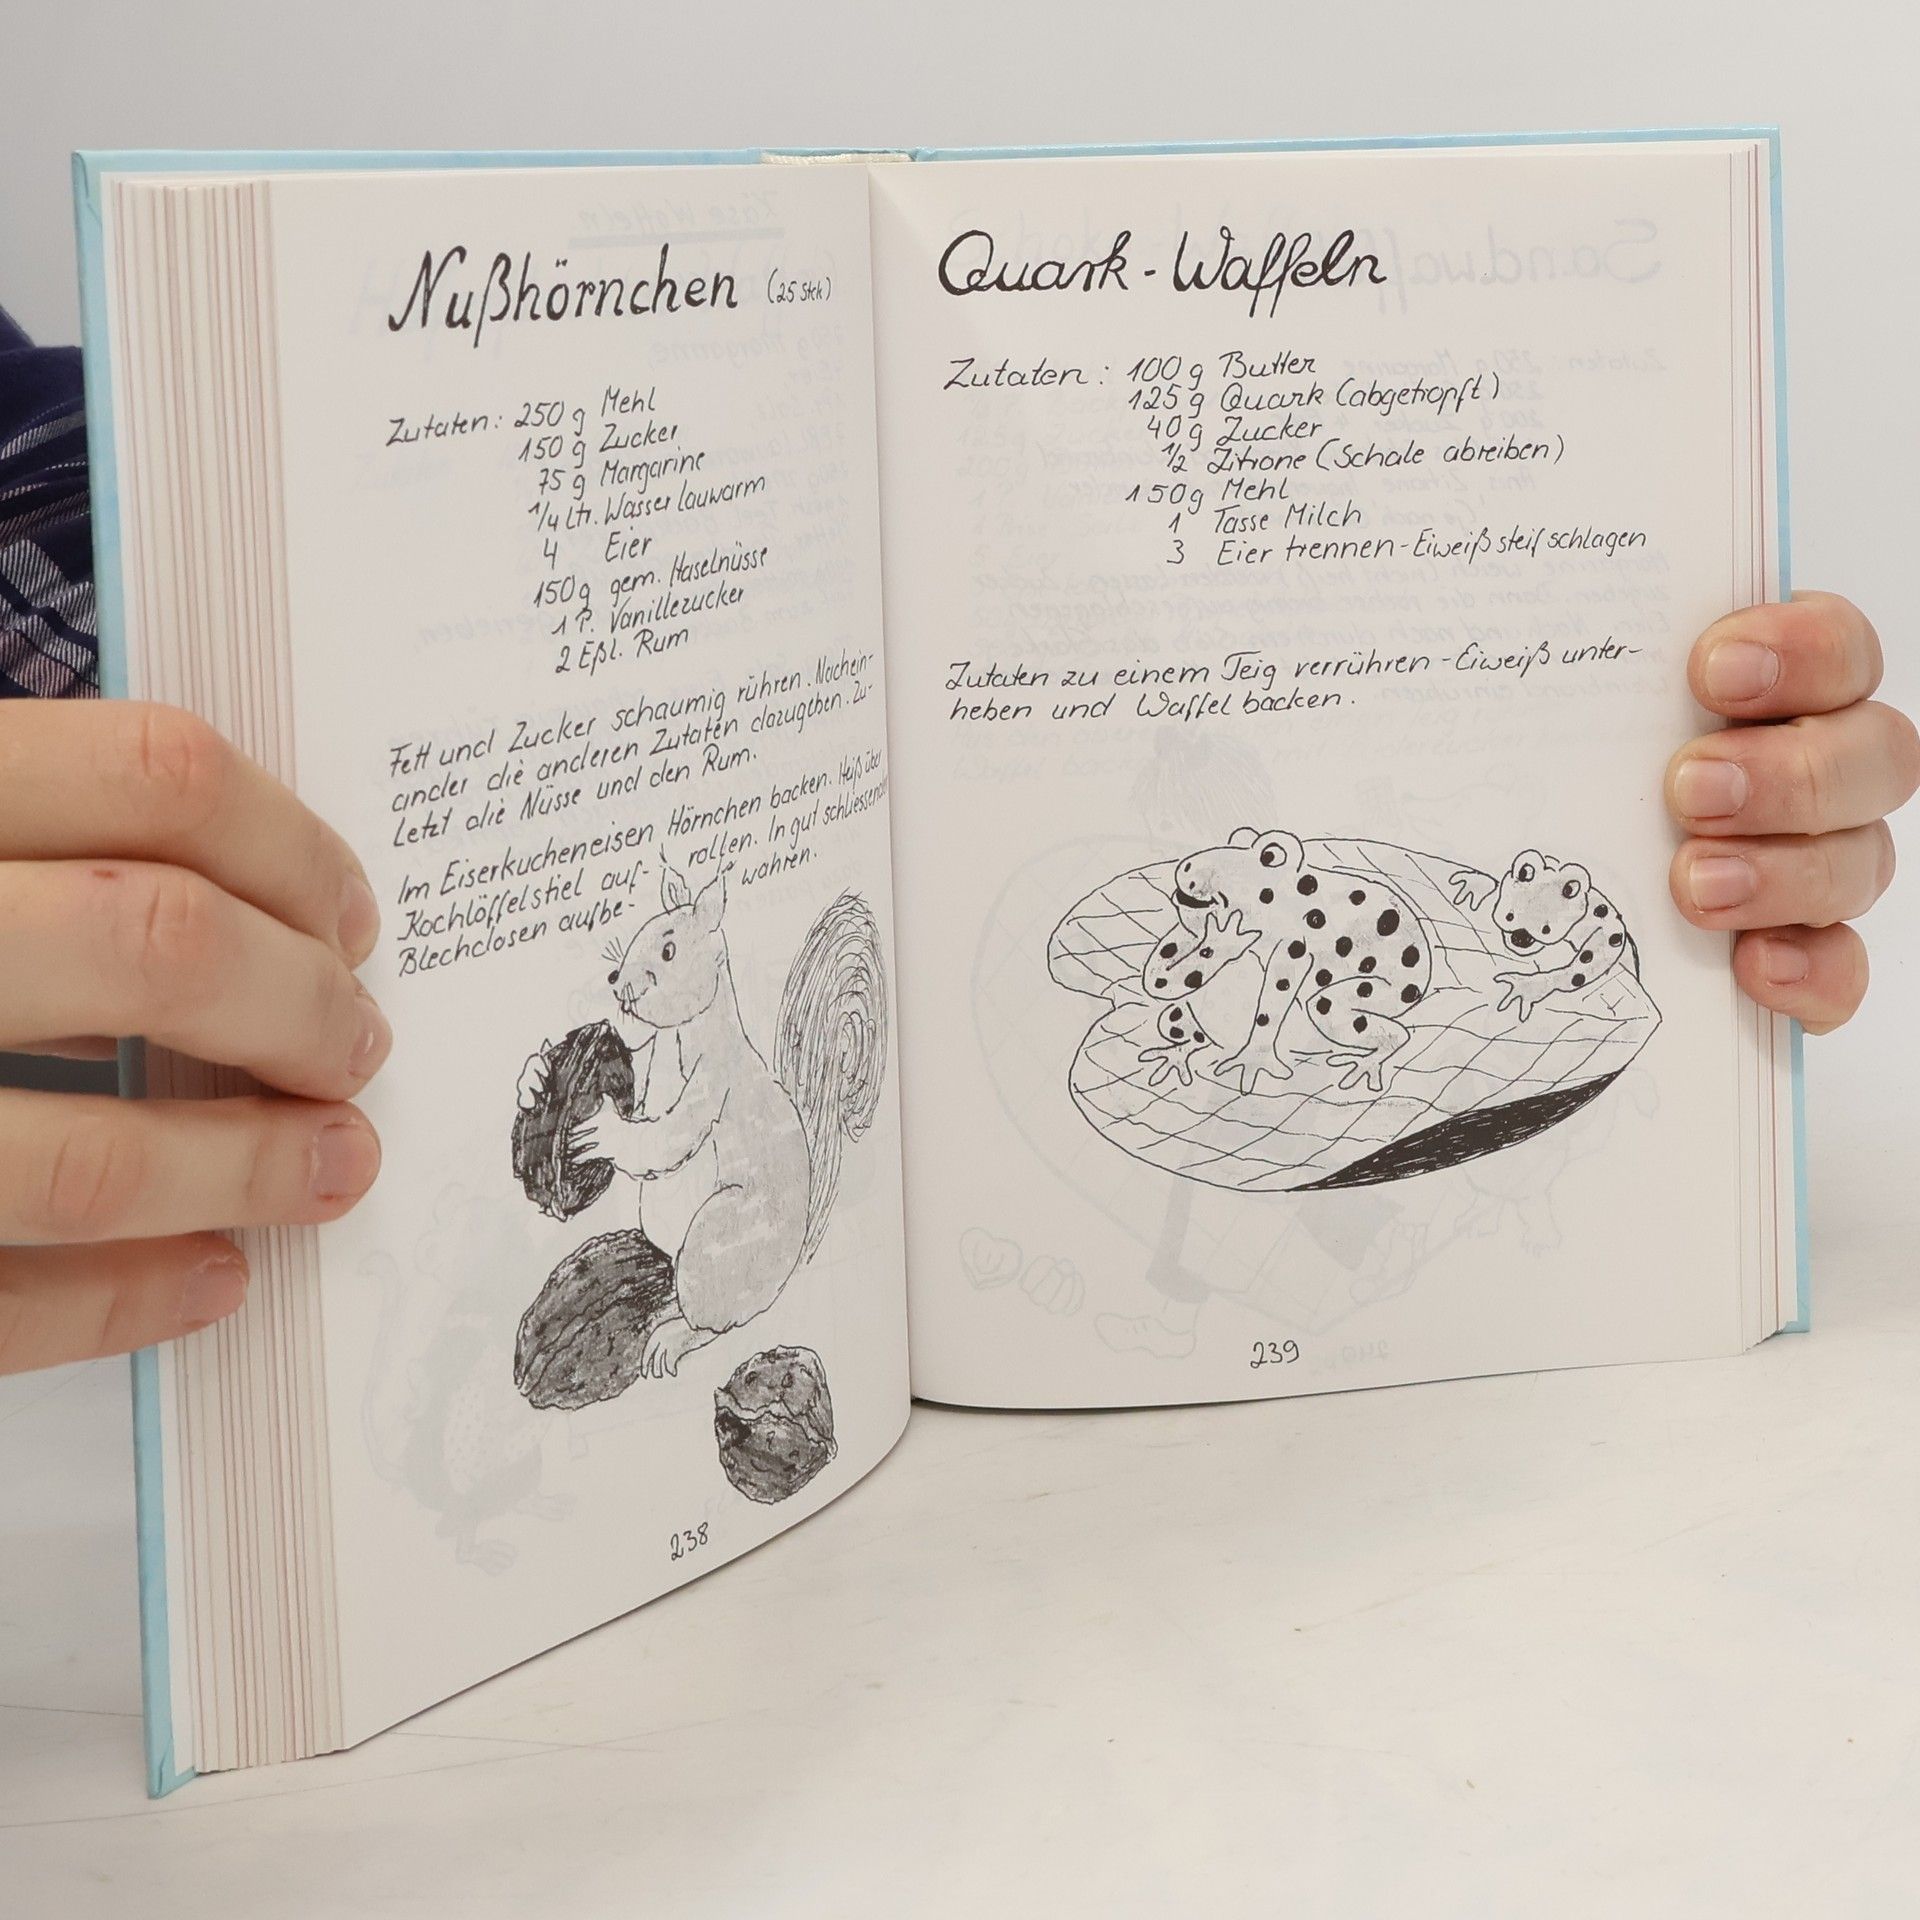 Nußhörnchen (25 Stck)
Zutaten: 250 g Mehl
150 g Zucker
75 g Margarine
1/4 Ltr. Wasser lauwarm
4 Eier
150g gem. Haselnüsse
1 P. Vanillezucker
2 Eßl. Rum
Fett und Zucker schaumig rühren. Nachein-
ander die anderen Zutaten dazugeben. Zu-
letzt die Nüsse und den Rum.
Im Eiserkucheneisen Hörnchen backen. Heiß über
Kochlöffelstiel auf- rollen. In gut schliessenden
Blechdosen aufbe- wahren.
238
Quark-Waffeln
Zutaten: 100 g Butter
125 g Quark (abgetropft)
40 g Zucker
1/2 Zitrone (Schale abreiben)
150g Mehl
1 Tasse Milch
3 Eier trennen-Eiweiß steif schlagen
Zutaten zu einem Teig verrühren-Eiweiß unter-
heben und Waffel backen.
239